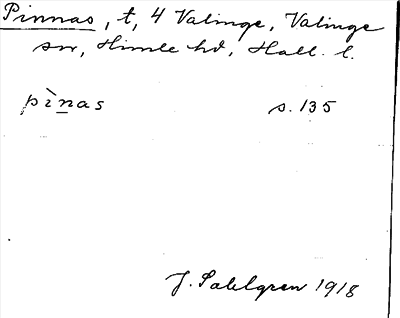 Pinnas, t, 4 Valinge, Valinge
sn, Himle hd, Hall. l.
pìnas s. 135
J. Sahlgren 1918